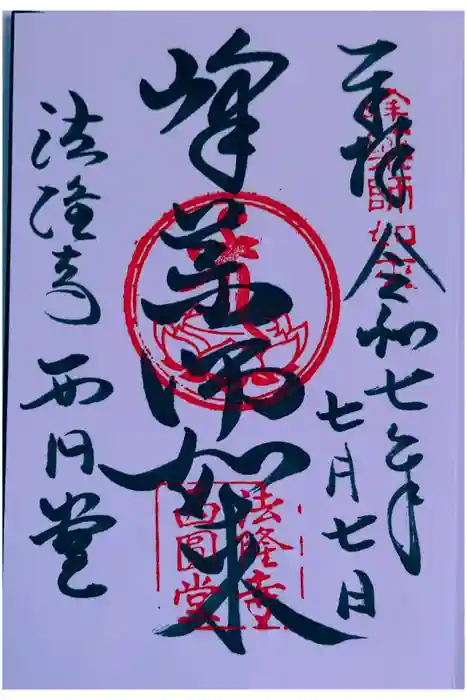 奉拝
令和七年
七月七日
峰薬師如来
法隆寺 西円堂
法隆寺
西圓堂